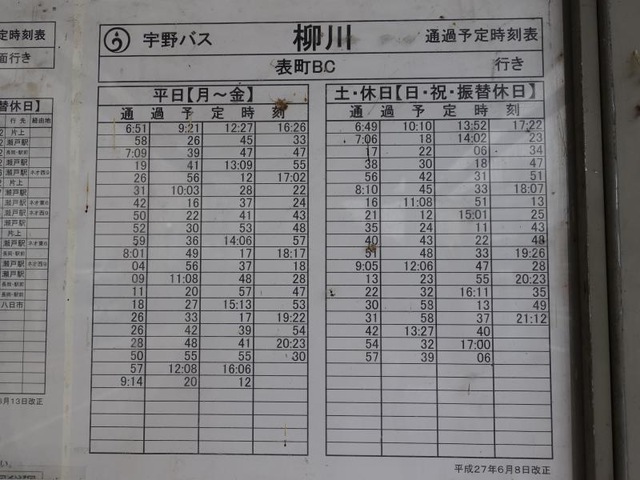 定時刻表
面行き
宇野バス 柳川 通過予定時刻表
表町BC 行き
平日【月～金】
通 過 予 定 時 刻
6:51 9:21 12:27 16:26
58 26 45 33
7:09 39 47 47
19 41 13:09 55
26 56 12 17:02
31 10:03 28 22
42 16 37 24
50 22 41 43
52 30 53 48
59 36 14:06 57
8:01 49 17 18:17
04 56 37 18
09 11:08 48 28
11 20 57 47
18 27 15:13 53
26 33 17 19:22
26 42 39 54
28 48 41 20:23
50 55 55 30
57 12:08 16:06
9:14 20 12
土・休日【日・祝・振替休日】
通 過 予 定 時 刻
6:49 10:10 13:52 17:22
7:06 18 14:02 23
17 22 06 34
38 30 18 47
56 42 31 51
8:10 45 33 18:07
16 11:08 51 13
21 12 15:01 25
35 24 11 43
40 43 22 48
51 48 33 19:26
9:05 12:06 47 28
13 23 55 20:23
22 32 16:11 35
30 58 13 49
31 58 37 21:12
42 13:27 40
54 32 17:00
57 39 06
平成27年6月8日改正
替休日】
行先 経由地
片上
瀬戸駅
瀬戸駅
瀬戸駅
片上
瀬戸駅
瀬戸駅
瀬戸駅
片上
瀬戸駅
瀬戸駅
八日市
月13日改正